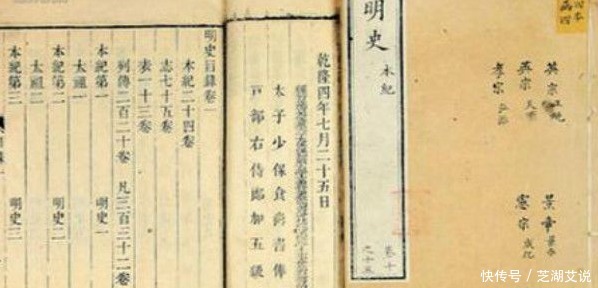 四本
明史
本紀
卷十
之十五
英宗正統
英宗天順
孝宗弘治
景帝景泰
憲宗成化
乾隆四年七月二十五日
太子少保食尚書俸
戶部右侍郎加五級
明史目錄卷一
本紀二十四卷
志七十五卷
表一十三卷
列傳二百二十卷 凡三百三十二卷
本紀第一 明史一
太祖一
本紀第二 明史二
太祖二
本紀第三 明史三
快传号 / 芝湖艾说